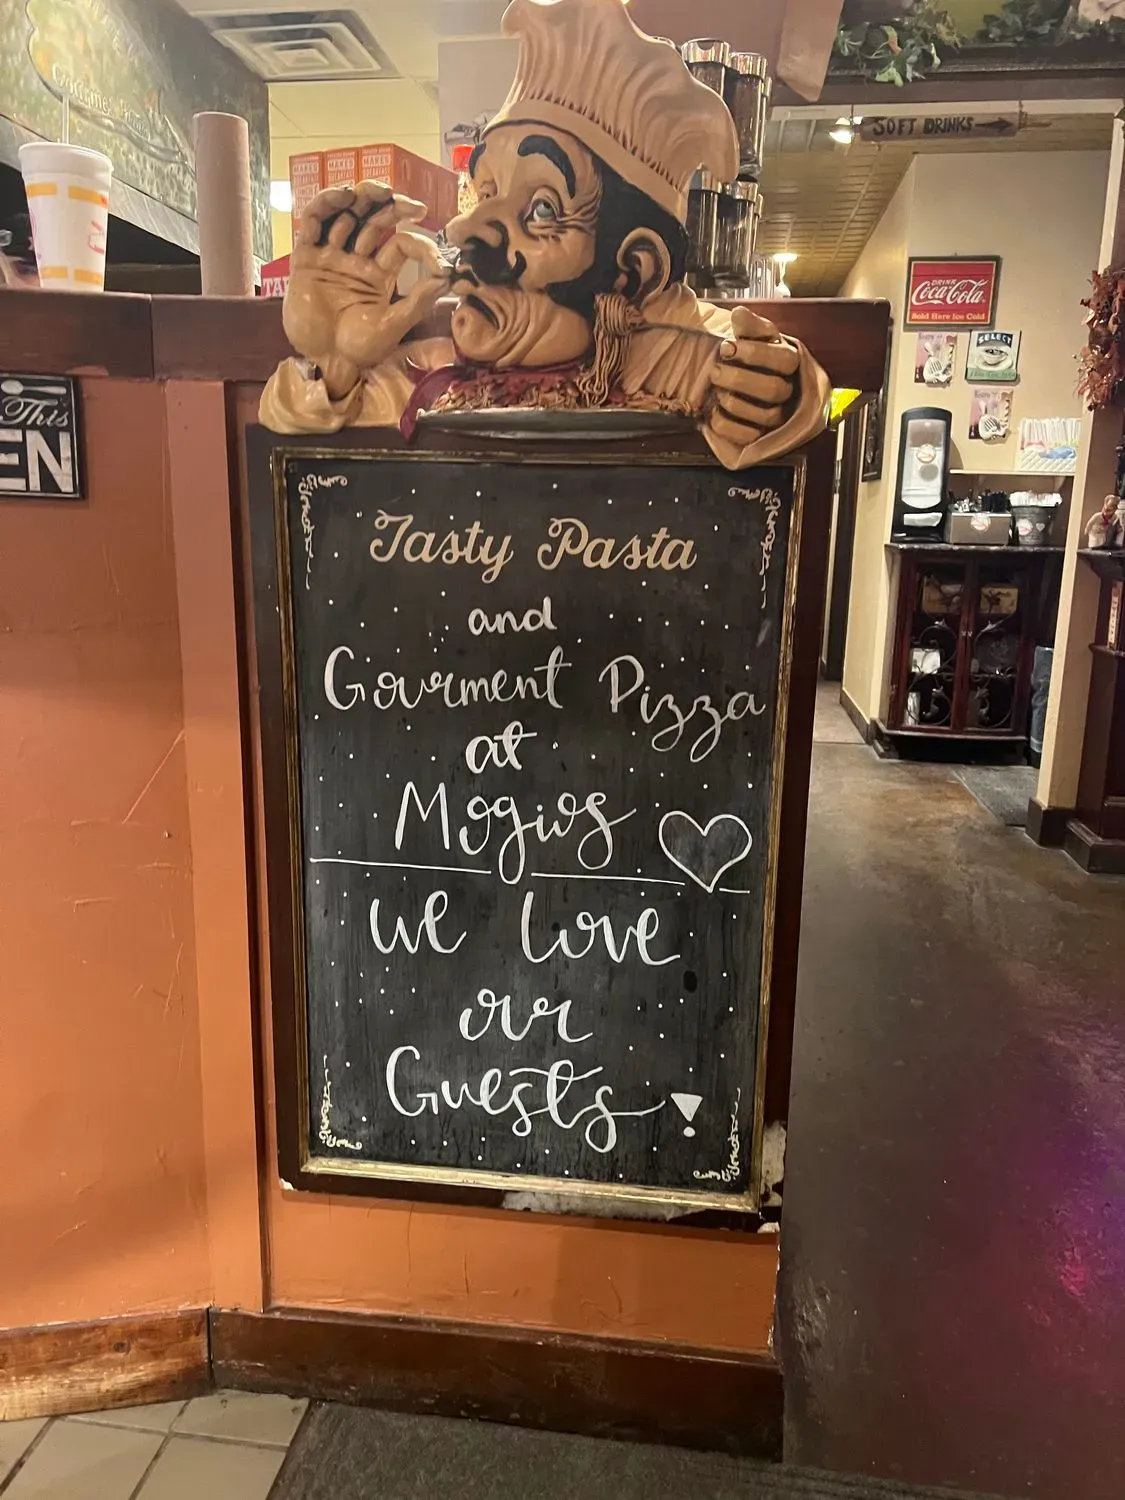 SOFT DRINKS
DRINK
Coca-Cola
Sold Here Ice Cold
SELECT
This
EN
Tasty Pasta
and
Gourment Pizza
at
Mogios
We love
our
Guests!